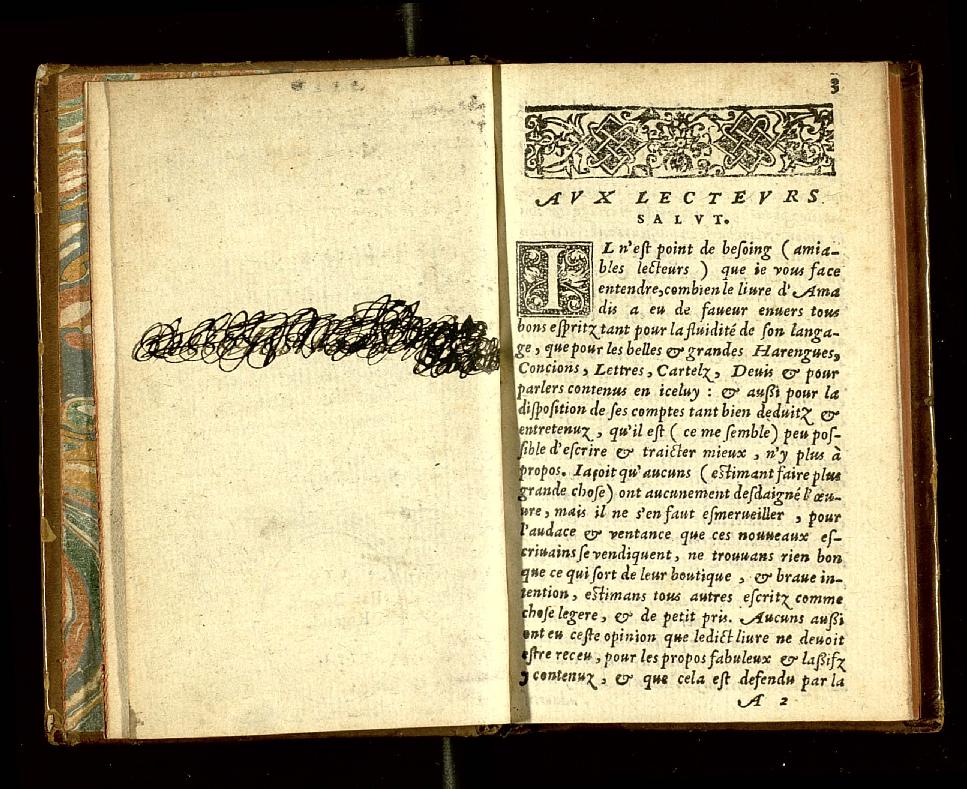 3
AVX LECTEVRS
SALVT.
IL n'eſt point de beſoing (amia-
bles lecteurs) que ie vous face
entendre, combien le liure d'Ama
dis a eu de faueur enuers tous
bons eſpritz tant pour la fluidité de ſon langa-
ge, que pour les belles & grandes Harengues,
Concions, Lettres, Cartelz, Deuis & pour
parlers contenus en iceluy : & auſſi pour la
diſpoſition de ſes comptes tant bien deduitz &
entretenuz, qu'il eſt (ce me ſemble) peu poſ-
ſible d'eſcrire & traicter mieux, n'y plus à
propos. Iaçoit qu'aucuns (eſtimant faire plus
grande choſe) ont aucunement deſdaigné l'œu-
ure, mais il ne s'en faut eſmerueiller, pour
l'audace & ventance que ces nouueaux eſ-
criuains ſe vendiquent, ne trouuans rien bon
que ce qui ſort de leur boutique, & braue in-
tention, eſtimans tous autres eſcritz comme
choſe legere, & de petit pris. Aucuns auſſi
ont eu ceſte opinion que ledict liure ne deuoit
eſtre receu, pour les propos fabuleux & laſſifz
y contenuz, & que cela eſt defendu par la
A 2